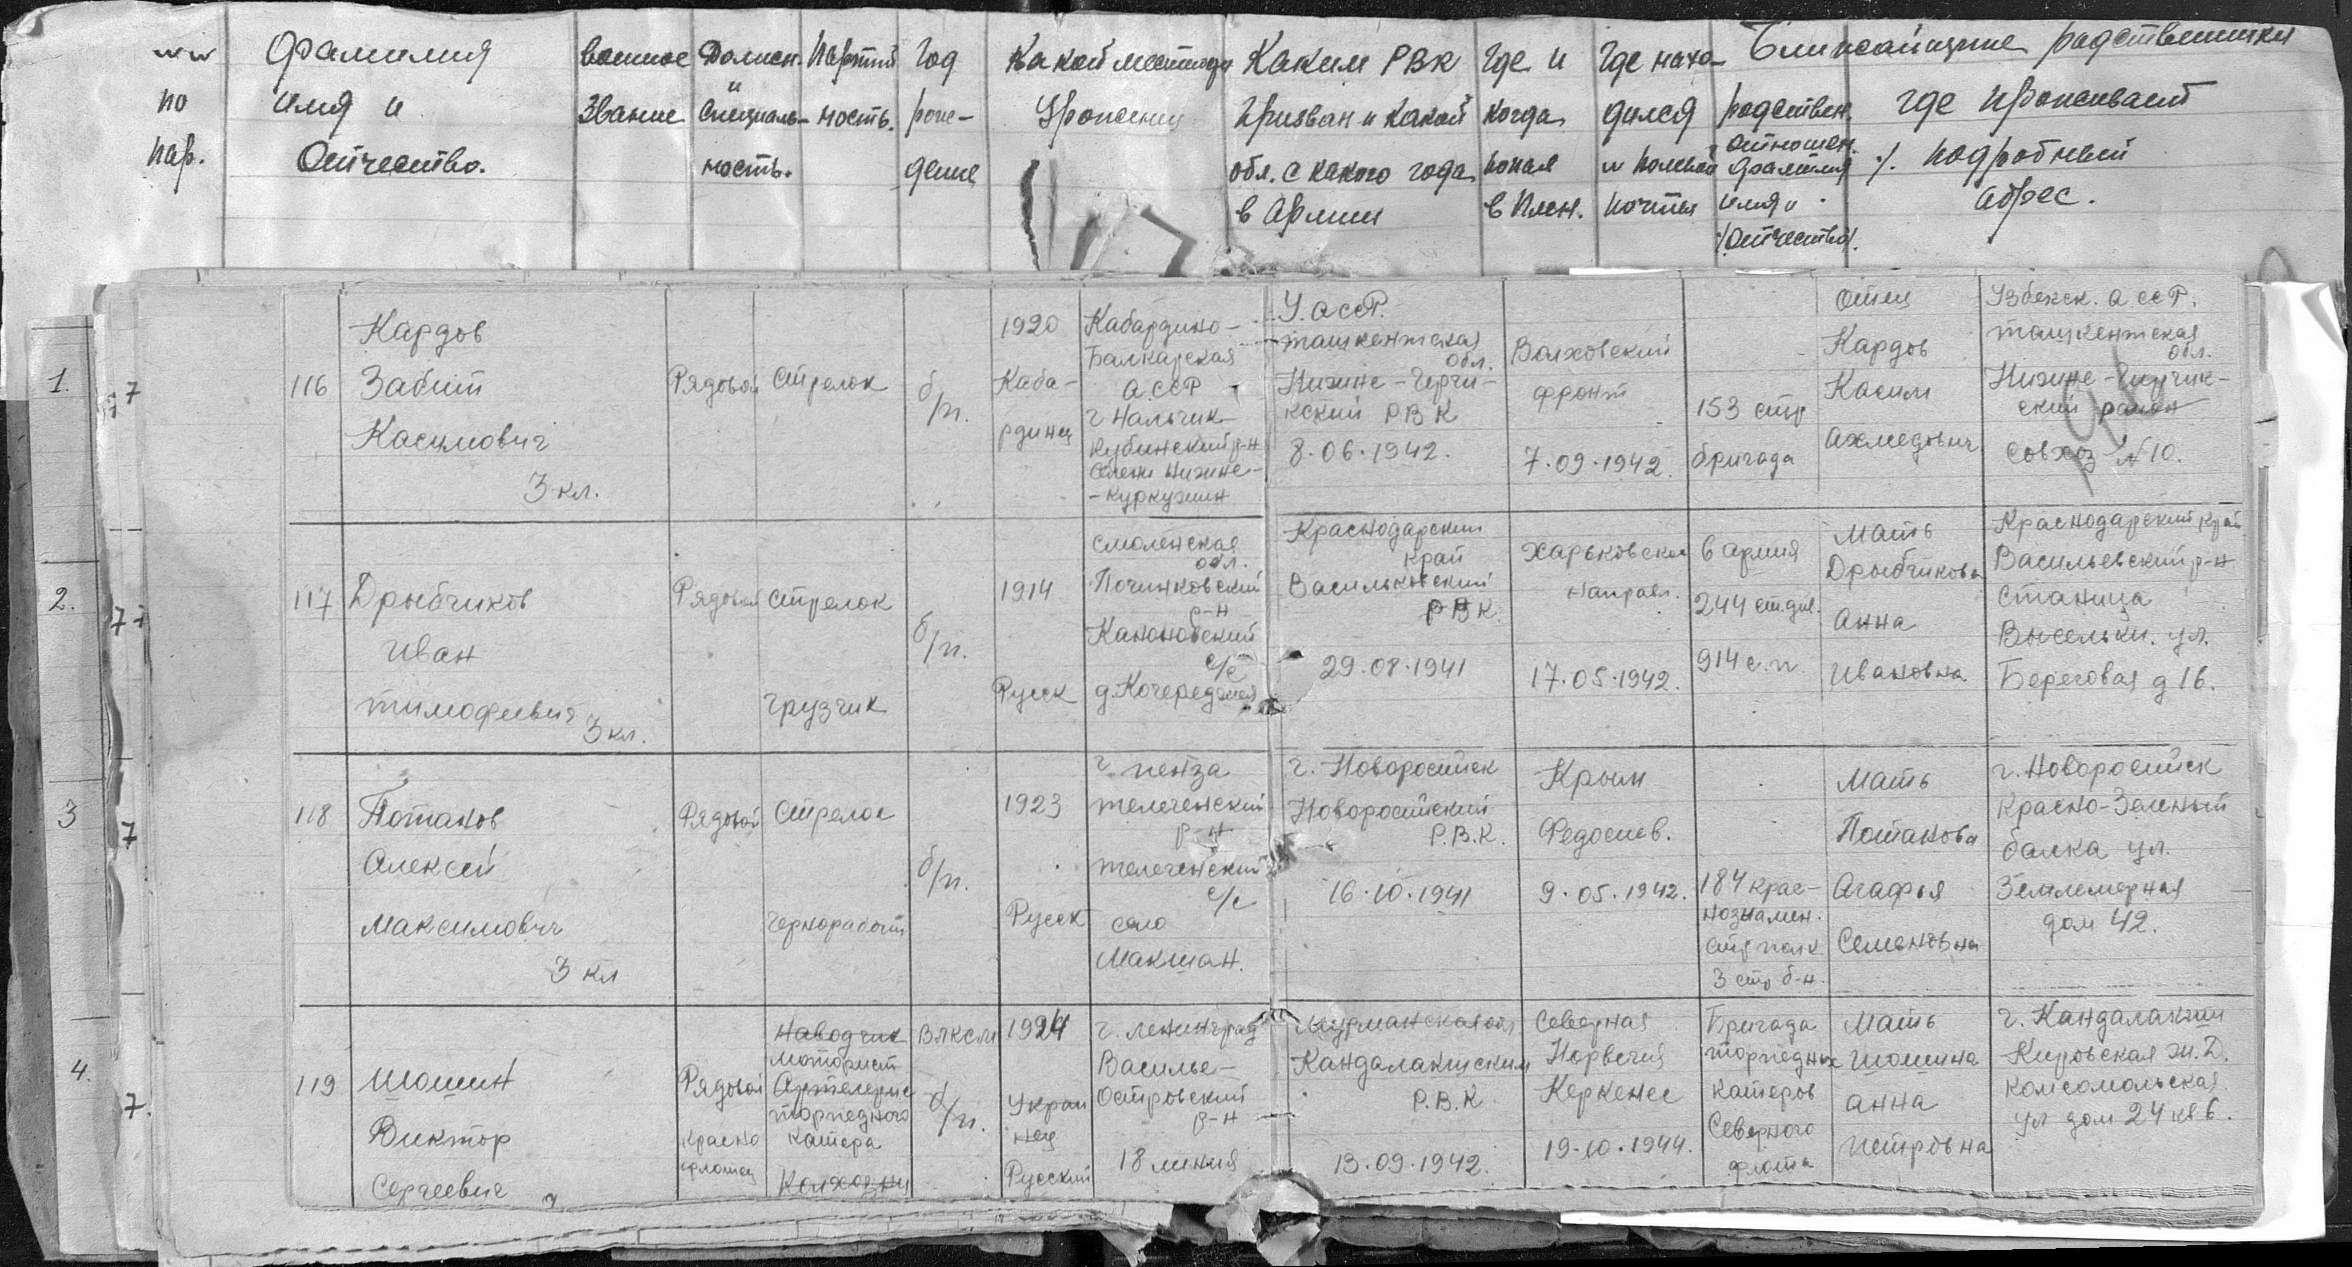 №№ по пор.
Фамилия имя и Отчество.
военное звание
Должн. и специаль-ность.
Партий-ность.
Год рож-дение
Какой местности Уроженец
Каким РВК Призван и какой обл. с какого года в Армии
Где и когда попал в плен.
Где нахо-дился и полевой почты
Ближайшие родственники
родствен. отношен. фамилия имя и /отчество/.
Где проживает /. подробный адрес.
1.
7
116
Кардов
Забит
Касимович
3 кл.
Рядовой
стрелок
б/п.
1920
Каба-
рдинец
Кабардино-
Балкарская
АССР
г. Нальчик
Кубинский р-н
Селение Нижне-
-куркужин
У.АССР.
ташкентская
обл.
Нижне-Чирчи-
кский РВК
8.06.1942.
Волховский
фронт
7.09.1942.
153 стр
бригада
отец
Кардов
Касим
Ахмедович
Узбекск. АССР.
ташкентская
обл.
Нижне-Чирчик-
ский район
Совхоз №10.
2.
7
117
Дрыбчиков
Иван
тимофеевич
3 кл.
Рядовой
стрелок
грузчик
б/п.
1914
Русск
Смоленская
обл.
Починковский
р-н
Каноновский
с/с
д.
Краснодарский
край
Васильковский
РВК.
29.08.1941
Харьковском
направл.
17.05.1942.
6 армия
244 ст. див.
914 с.п.
Мать
Дрыбчикова
Анна
Ивановна.
Краснодарский край
Васильевский р-н
Станица
Выселки. ул.
Береговая д 16.
3
7
118
Потапов
Алексей
Максимович
3 кл
Рядовой
стрелок
чернорабочий
б/п.
1923
Русск
г. пенза
телегенский
р-н
телегенский
с/с
село
Макшан.
г. Новоросийск
Новоросийский
Р.В.К.
16.10.1941
Крым
Федосиев.
9.05.1942.
184 крас-
нознамен.
стр полк
3 стр б-н.
Мать
Потапова
Агафья
Семеновна
г. Новоросийск
Красно-Зеленый
балка ул.
Землемерная
дом 42.
4.
7.
119
Шошин
Виктор
Сергеевич
Рядовой
красно
флотец
Наводчик
моторист
торпедного
катера
Колхозни
ВЛКСМ
б/п.
1924
Украи
нец
Русский
г. Ленинград
Василье-
Островский
р-н
18 линия
Мурманская обл
Кандалакшским
Р.В.К
13.09.1942.
Северная
Норвегия
Керкенес
19.10.1944.
Бригада
торпедных
катеров
Северного
флота
Мать
Шошина
Анна
петровна
г. Кандалакши
Кировская ж.Д.
комсомольская
ул дом 24 кв 6.